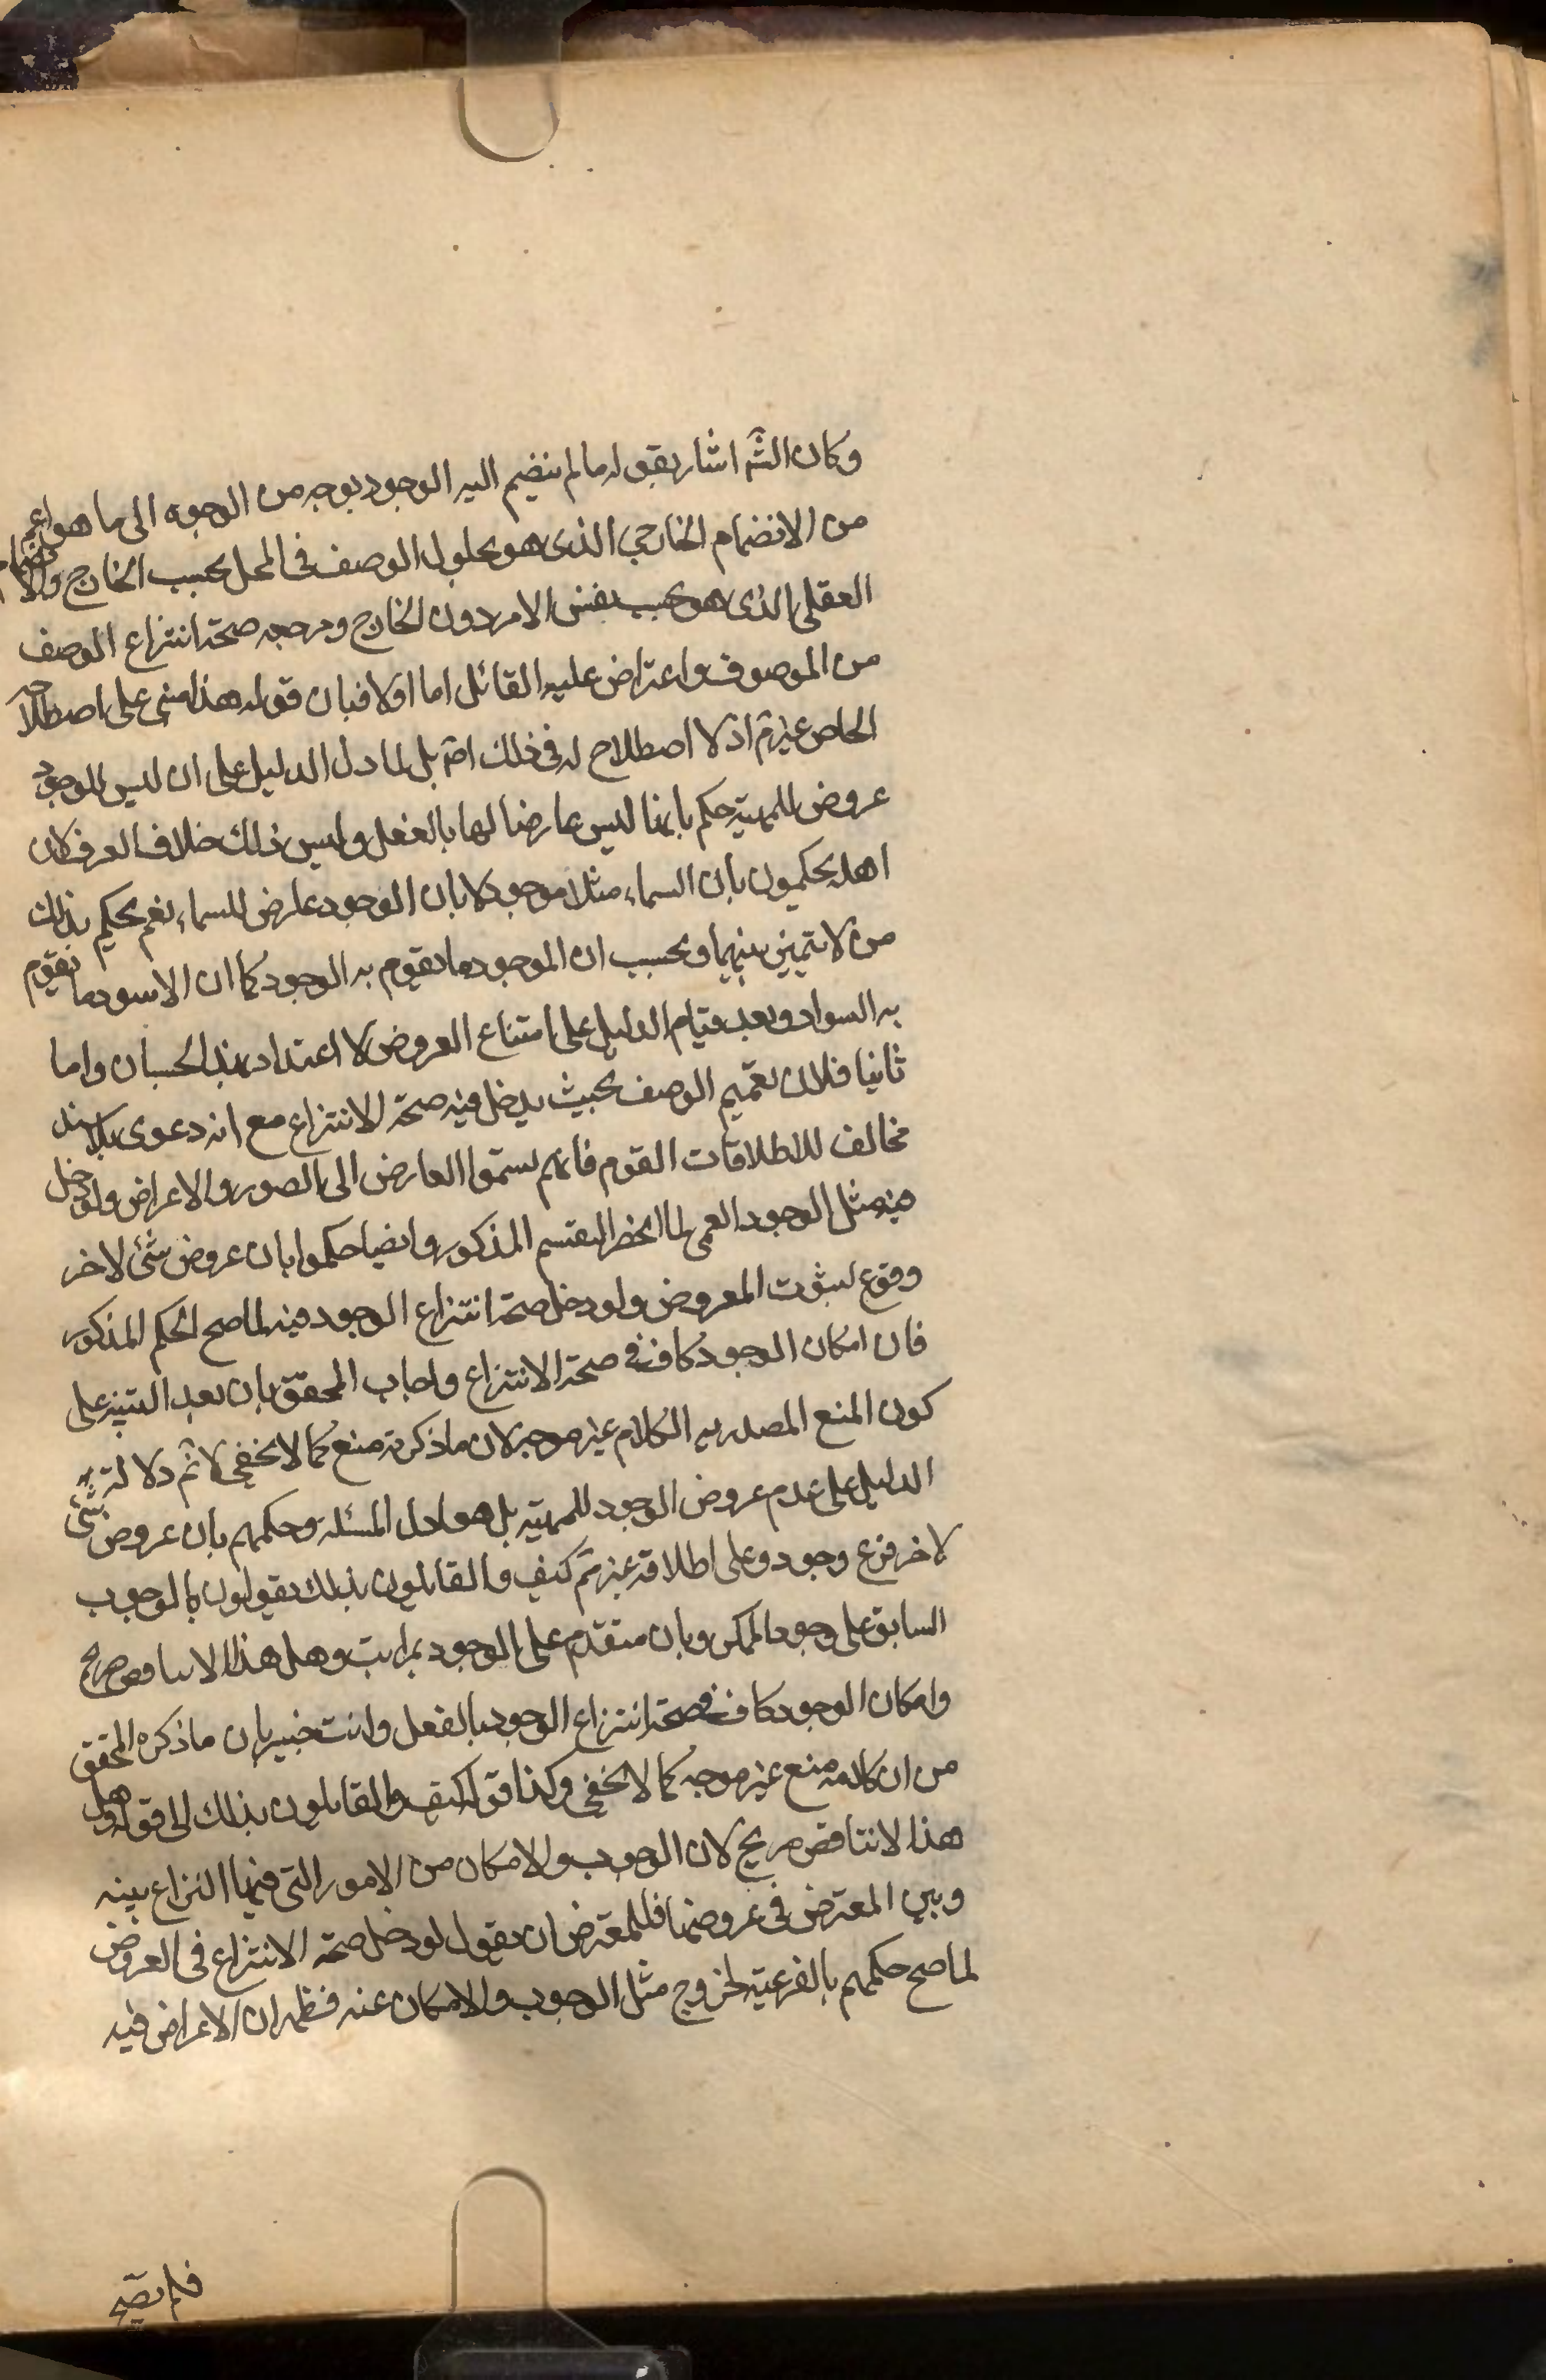 وكان الشه اشار بقوله ما لم ينضم اليه الوجود بوجه من الوجوه الى ما هو اعم
من الانضمام الخارجي الذى هو بحلول الوصف فى المحل بحسب الخارج والانضمام
العقلى الذى هو بحسب نفس الامر دون الخارج ومرجعه صحة انتزاع الوصف
من الموصوف واعتراض عليه القائل اما اولا فبان قوله هذا مبنى على اصطلاحه
الخاص غير تم اذ لا اصطلاح له فى ذلك اصه بل لما دل الدليل على ان ليس للوجود
عروض للمهية حكم بانها ليس عارضا لها بالفعل وليس ذلك خلاف العرف كان
اهله يحكمون بان السماء مثلا موجود لا بان الوجود عارض للسماء نعم يحكم بذلك
من لا يتميز بينهما ويحسب ان الموجود ما يقوم به الوجود كما ان الاسود ما يقوم
به السواد وبعد قيام الدليل على امتناع العروض لا اعتداد بهذا الحسبان واما
ثانيا فلان تعميم الوصف بحيث يدخل فيه صحة الانتزاع مع انه دعوى بلا سند
مخالف للاطلاقات القوم فانهم يسمقوا العارض الى الصور والاعراض ولو دخل
فيه مثل الوجود العمى لما انحضر التقسم المذكور وايضا حكموا بان عروض شئ لاخر
وقوع لثبوت المعروض ولو دخل صحة انتزاع الوجود فيه لما صح الحكم المذكور
فان امكان الوجود كاف فى صحة الانتزاع واجاب المحقق بان بعد التنبيه على
كون المنع المصدر به الكلام غير موجه لان ما ذكرته منع كما لا يخفى لا ثم دلالة
الدليل على عدم عروض الوجود للمهية بل هو اول المسئلة وحكمهم بان عروض شئ
لاخر فرع وجوده على اطلاقه غير تم كيف والقايلون بذلك يقولون بالوجوب
السابق على وجود الممكن وبان متقدم على الوجود بمراتب وهل هذا الا تناقض صريح
وامكان الوجود كاف فى صحة انتزاع الوجود بالفعل وانت خبير بان ما ذكره المحقق
من ان كلامه منع غير موجه كما لا يخفى وكذا قوله كيف والقايلون بذلك الى قوله وهل
هذا لا تناقض صريح لان الوجوب والامكان من الامور التى فيها النزاع بينه
وبين المعترض فى عروضها فللمعترض ان يقول لو دخل صحة الانتزاع فى العروض
لما صح حكمهم بالفرعية لخروج مثل الوجوب والامكان عنه فظهر ان الاعراض فيه
فلم يصح